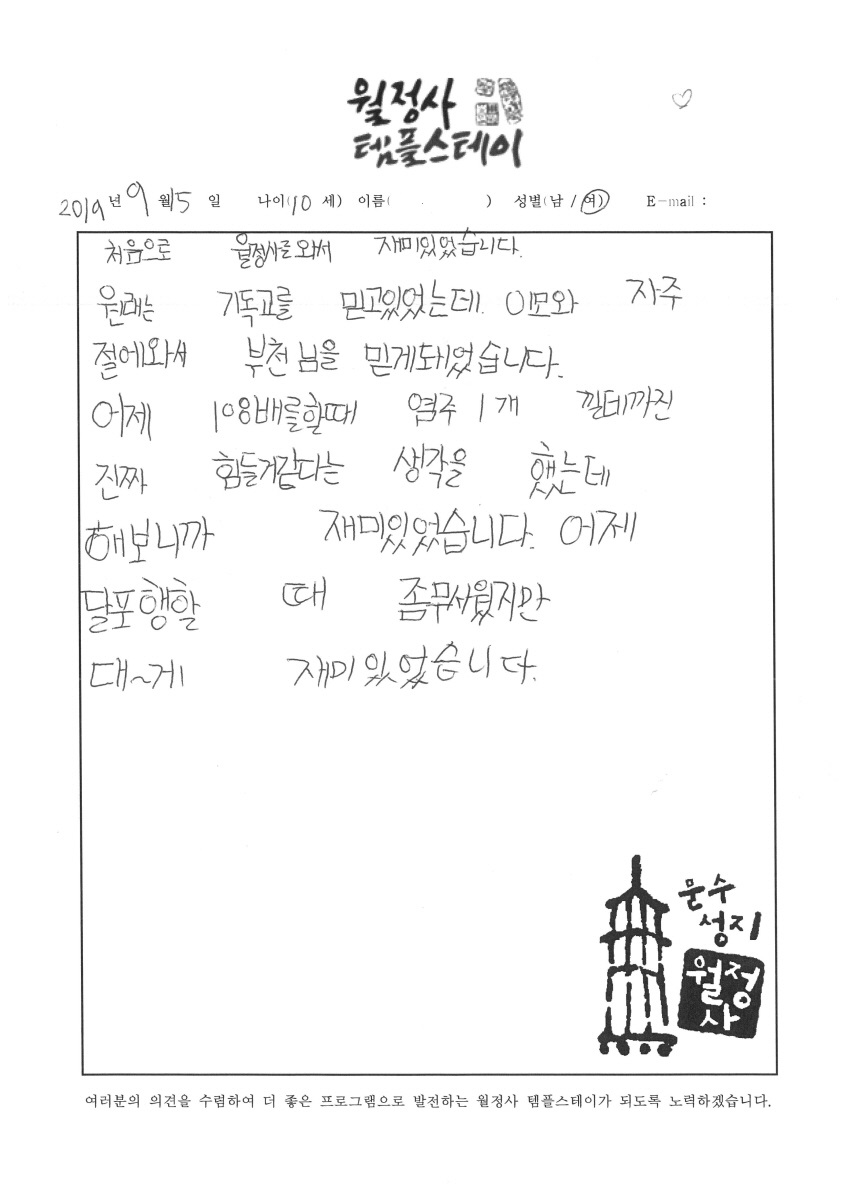 월정사
템플스테이
2019년 9월 15일 나이(10세) 이름( ) 성별(남 / 여) E-mail :
처음으로 월정사로와서 재미있었습니다.
원래는 기독교를 믿고있었는데. 이모와 자주
절에와서 부천님을 믿게돼었습니다.
어제 108배를할때 염주 1개 낄테까진
진짜 힘들거같다는 생각을 했는데
해보니까 재미있었습니다. 어제
달포행할 때 좀무서웠지만
대~게 재미있었습니다.
문수
성지
월정
사
여러분의 의견을 수렴하여 더 좋은 프로그램으로 발전하는 월정사 템플스테이가 되도록 노력하겠습니다.